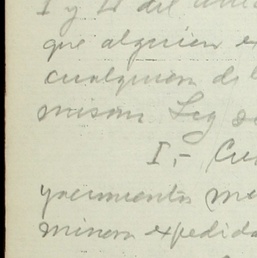 I y II del
que alguien e
cualquiera de l
misma Ley
I.- Cu
yacimientos m
minera expedida